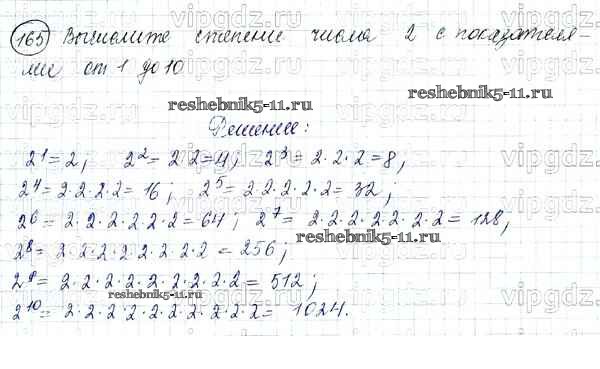 165 Вычислите степени числа 2 с показателя-
ми от 1 до 10
reshebnik5-11.ru
Решение:
2¹ = 2; 2² = 2·2 = 4; 2³ = 2·2·2 = 8;
2⁴ = 2·2·2·2 = 16; 2⁵ = 2·2·2·2·2 = 32;
2⁶ = 2·2·2·2·2·2 = 64; 2⁷ = 2·2·2·2·2·2·2 = 128;
reshebnik5-11.ru
2⁸ = 2·2·2·2·2·2·2·2 = 256;
2⁹ = 2·2·2·2·2·2·2·2·2 = 512;
reshebnik5-11.ru
2¹⁰ = 2·2·2·2·2·2·2·2·2·2 = 1024.
vipgdz.ru